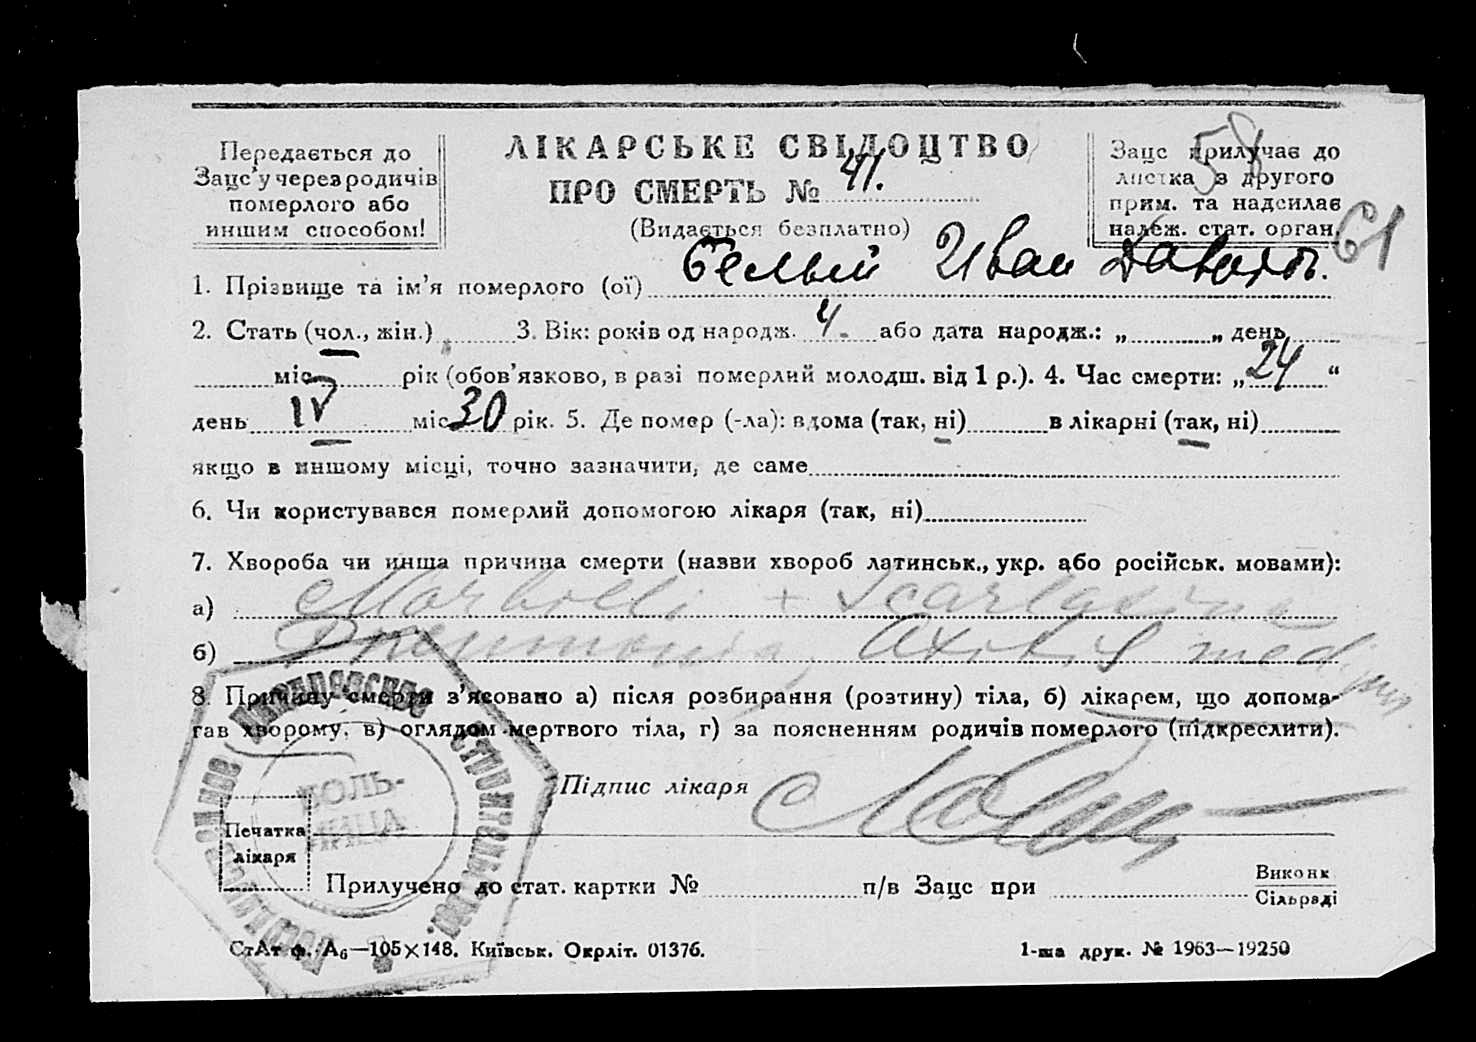 Передається до
Загс'у через родичів
померлого або
иншим способом!
ЛІКАРСЬКЕ СВІДОЦТВО
ПРО СМЕРТЬ № 41.
(Видається безплатно)
Загс прилучає до
листка з другого
прим. та надсилає
належ. стат. орган.
58
61
1. Прізвище та ім'я померлого (ої) Белый Иван
2. Стать (чол., жін.) 3. Вік: років од народж. 4. або дата народж.: „ „ день
міс. рік (обов'язково, в разі померлий молодш. від 1 р.). 4. Час смерти: „ 24 “
день IV міс. 30 рік. 5. Де помер (-ла): вдома (так, ні) в лікарні (так, ні)
якщо в иншому місці, точно зазначити, де саме
6. Чи користувався померлий допомогою лікаря (так, ні)
7. Хвороба чи инша причина смерти (назви хвороб латинськ., укр. або російськ. мовами):
а) Morbilli + Scarlatina
б) Pneumonia, Otitis med
8. Причину смерти з'ясовано а) після розбирання (розтину) тіла, б) лікарем, що допома-
гав хворому, в) оглядом мертвого тіла, г) за поясненням родичів померлого (підкреслити).
Підпис лікаря
БОЛЬ-
НИЦА
Печатка
лікаря
Прилучено до стат. картки № п/в Загс при Виконк
Сільраді
СтАт ф. А6—105×148. Київськ. Окрліт. 01376.
1-ша друк. № 1963—19250